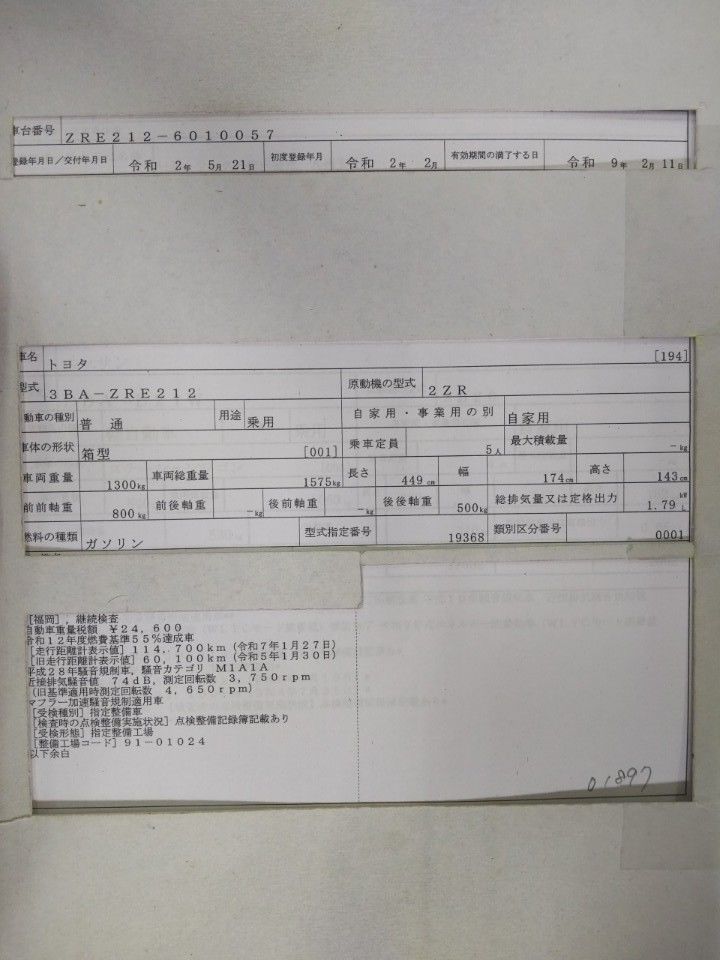 車台番号 ZRE212-6010057
登録年月日/交付年月日 令和 2年 5月 21日 初度登録年月 令和 2年 2月 有効期間の満了する日 令和 9年 2月 11日
車名 トヨタ [194]
型式 3BA-ZRE212 原動機の型式 2ZR
動車の種別 普通 用途 乗用 自家用・事業用の別 自家用
車体の形状 箱型 [001] 乗車定員 5人 最大積載量 -kg
車両重量 1300kg 車両総重量 1575kg 長さ 449cm 幅 174cm 高さ 143cm
前前軸重 800kg 前後軸重 -kg 後前軸重 -kg 後後軸重 500kg 総排気量又は定格出力 1.79 kW L
燃料の種類 ガソリン 型式指定番号 19368 類別区分番号 0001
[福岡],継続検査
自動車重量税額 ¥24,600
令和12年度燃費基準55%達成車
[走行距離計表示値] 114,700km (令和7年1月27日)
[旧走行距離計表示値] 60,100km (令和5年1月30日)
平成28年騒音規制車,騒音カテゴリ M1A1A
近接排気騒音値 74dB,測定回転数 3,750rpm
(旧基準適用時測定回転数 4,650rpm)
マフラー加速騒音規制適用車
[受検種別] 指定整備車
[検査時の点検整備実施状況] 点検整備記録簿記載あり
[受検形態] 指定整備工場
[整備工場コード] 91-01024
以下余白
01897